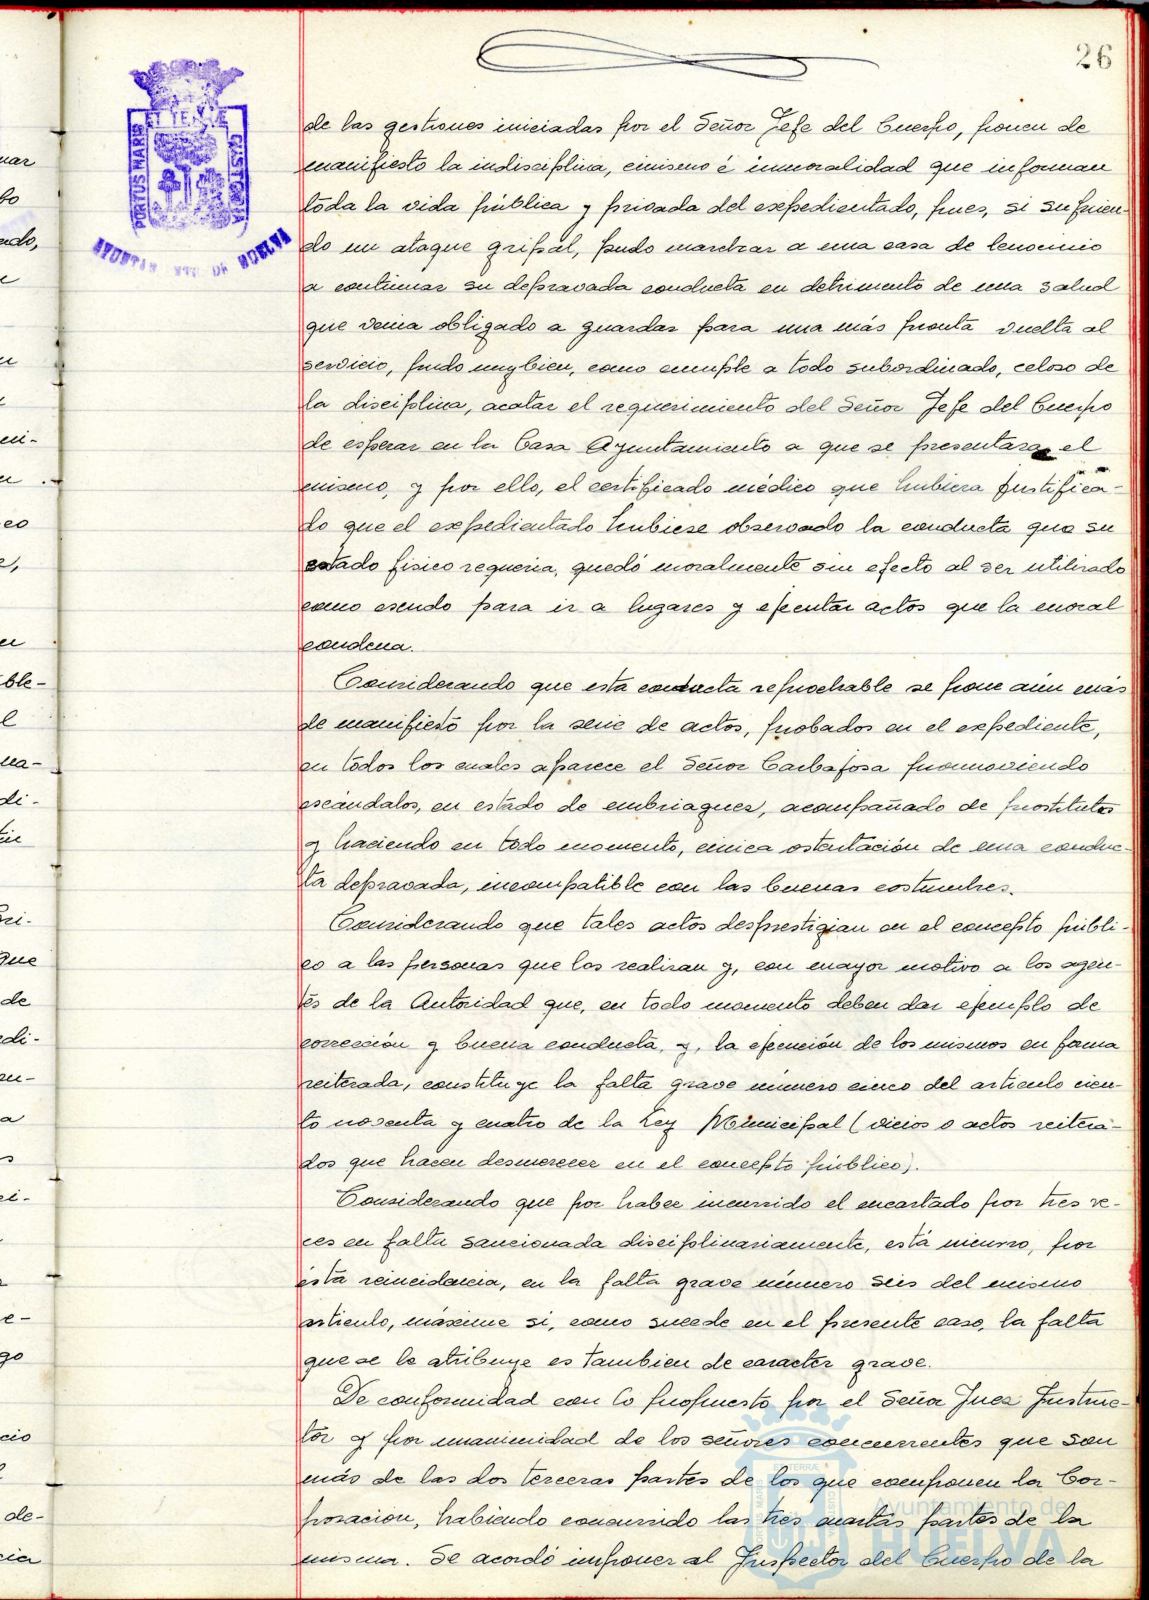 26
PORTUS MARIS ET TERRÆ CUSTODIA
AYUNTAMIENTO DE HUELVA
de las gestiones iniciadas por el Señor Jefe del Cuerpo, ponen de
manifiesto la indisciplina, cinismo é inmoralidad que informan
toda la vida pública y privada del expedientado, pues, si sufrien-
do un ataque gripal, pudo marchar a una casa de lenocinio
a continuar su depravada conducta en detrimento de una salud
que venia obligado a guardar para una más pronta vuelta al
servicio, pudo muy bien, como cumple a todo subordinado, celoso de
la disciplina, acatar el requerimiento del Señor Jefe del Cuerpo
de esperar en la Casa Ayuntamiento a que se presentara el
mismo, y por ello, el certificado médico que hubiera justifica-
do que el expedientado hubiese observado la conducta que su
estado fisico requeria, quedó moralmente sin efecto al ser utilizado
como escudo para ir a lugares y ejecutar actos que la moral
condena.
Considerando que esta conducta reprochable se pone aún más
de manifiesto por la serie de actos, probados en el expediente,
en todos los cuales aparece el Señor Carbajosa promoviendo
escándalos, en estado de embriaguez, acompañado de prostitutas
y haciendo en todo momento, cinica ostentación de una conduc-
ta depravada, incompatible con las buenas costumbres.
Considerando que tales actos desprestigian en el concepto públi-
co a las personas que los realizan y, con mayor motivo a los agen-
tes de la Autoridad que, en todo momento deben dar ejemplo de
corrección y buena conducta, y, la ejecución de los mismos en forma
reiterada, constituye la falta grave número cinco del articulo cien-
to noventa y cuatro de la Ley Municipal (vicios o actos reitera-
dos que hacen desmerecer en el concepto público).
Considerando que por haber incurrido el encartado por tres ve-
ces en falta sancionada disciplinariamente, está incurso, por
ésta reincidencia, en la falta grave número seis del mismo
articulo, máxime si, como sucede en el presente caso, la falta
que se le atribuye es tambien de caracter grave.
De conformidad con lo propuesto por el Señor Juez Instruc-
tor y por unanimidad de los señores concurrentes que son
más de las dos terceras partes de los que componen la Cor-
poración, habiendo concurrido las tres cuartas partes de la
misma. Se acordó imponer al Inspector del Cuerpo de la
Ayuntamiento de
HUELVA